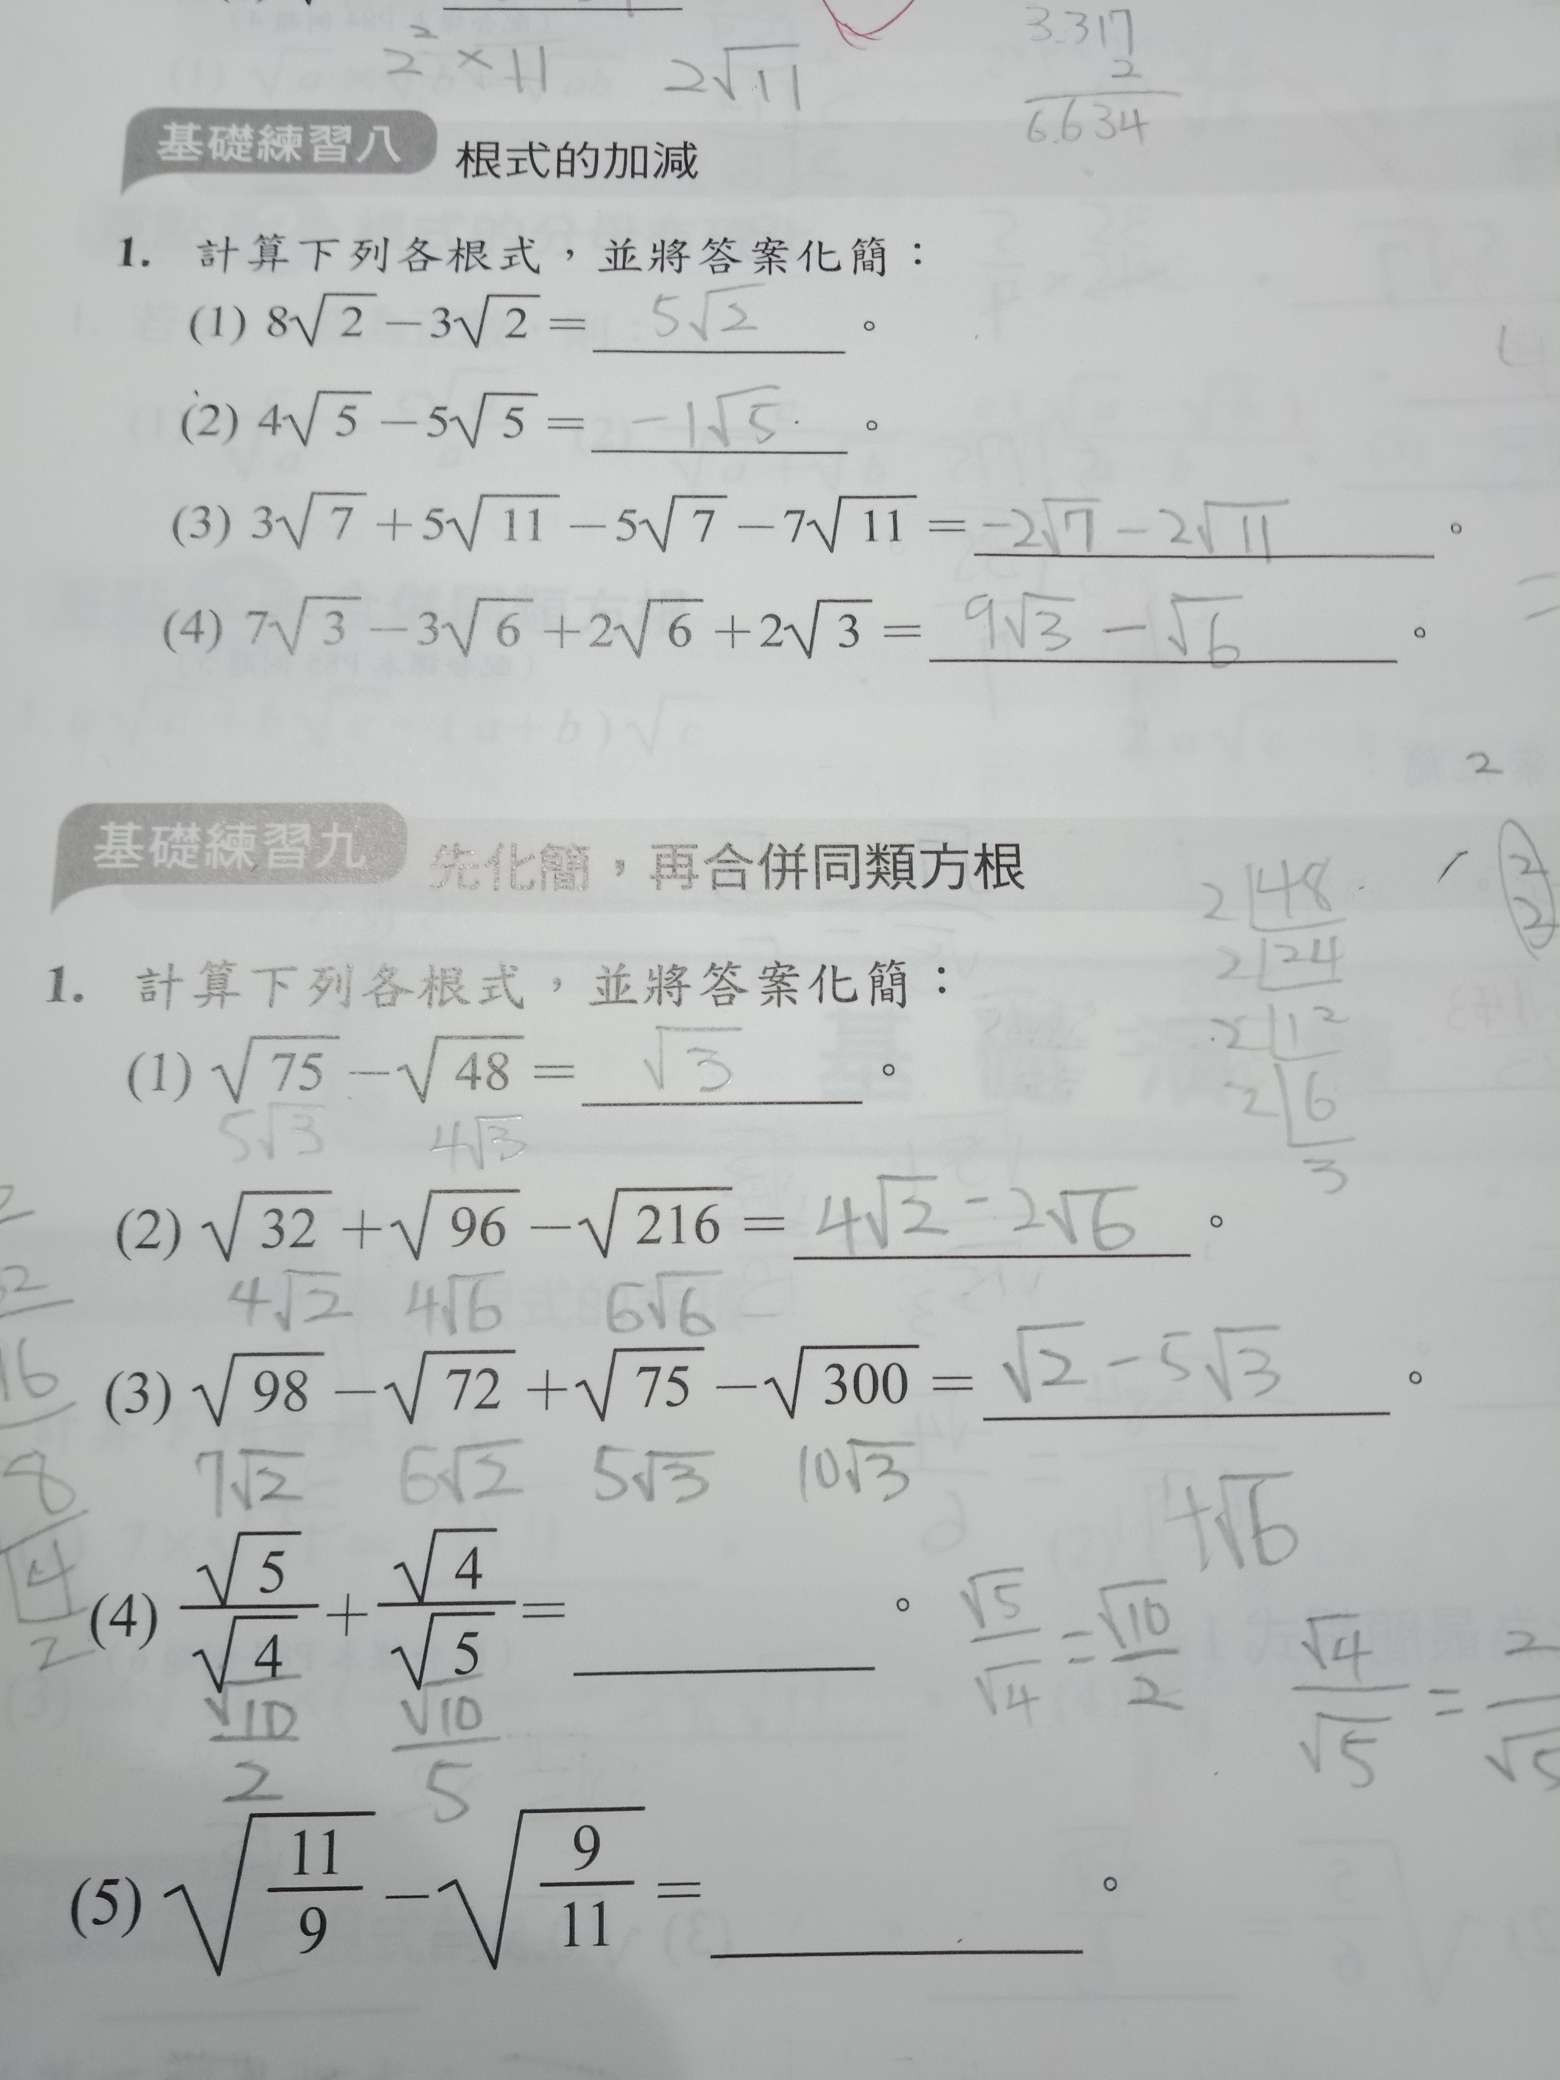 2² × 11 2√11
3.317
2
6.634
基礎練習八 根式的加減
1. 計算下列各根式，並將答案化簡：
(1) 8√2 − 3√2 = 5√2 。
(2) 4√5 − 5√5 = −1√5 。
(3) 3√7 + 5√11 − 5√7 − 7√11 = −2√7 − 2√11 。
(4) 7√3 − 3√6 + 2√6 + 2√3 = 9√3 − √6 。
基礎練習九 先化簡，再合併同類方根
2 48
2 24
2 12
2 6
3
1. 計算下列各根式，並將答案化簡：
(1) √75 − √48 = √3 。
5√3 4√3
(2) √32 + √96 − √216 = 4√2 − 2√6 。
4√2 4√6 6√6
(3) √98 − √72 + √75 − √300 = √2 − 5√3 。
7√2 6√2 5√3 10√3
16
8
4
2
4√6
(4) √5/√4 + √4/√5 = 。
√10/2 √10/5
√5/√4 = √10/2 √4/√5 = 2/√5
(5) √(11/9) − √(9/11) = 。